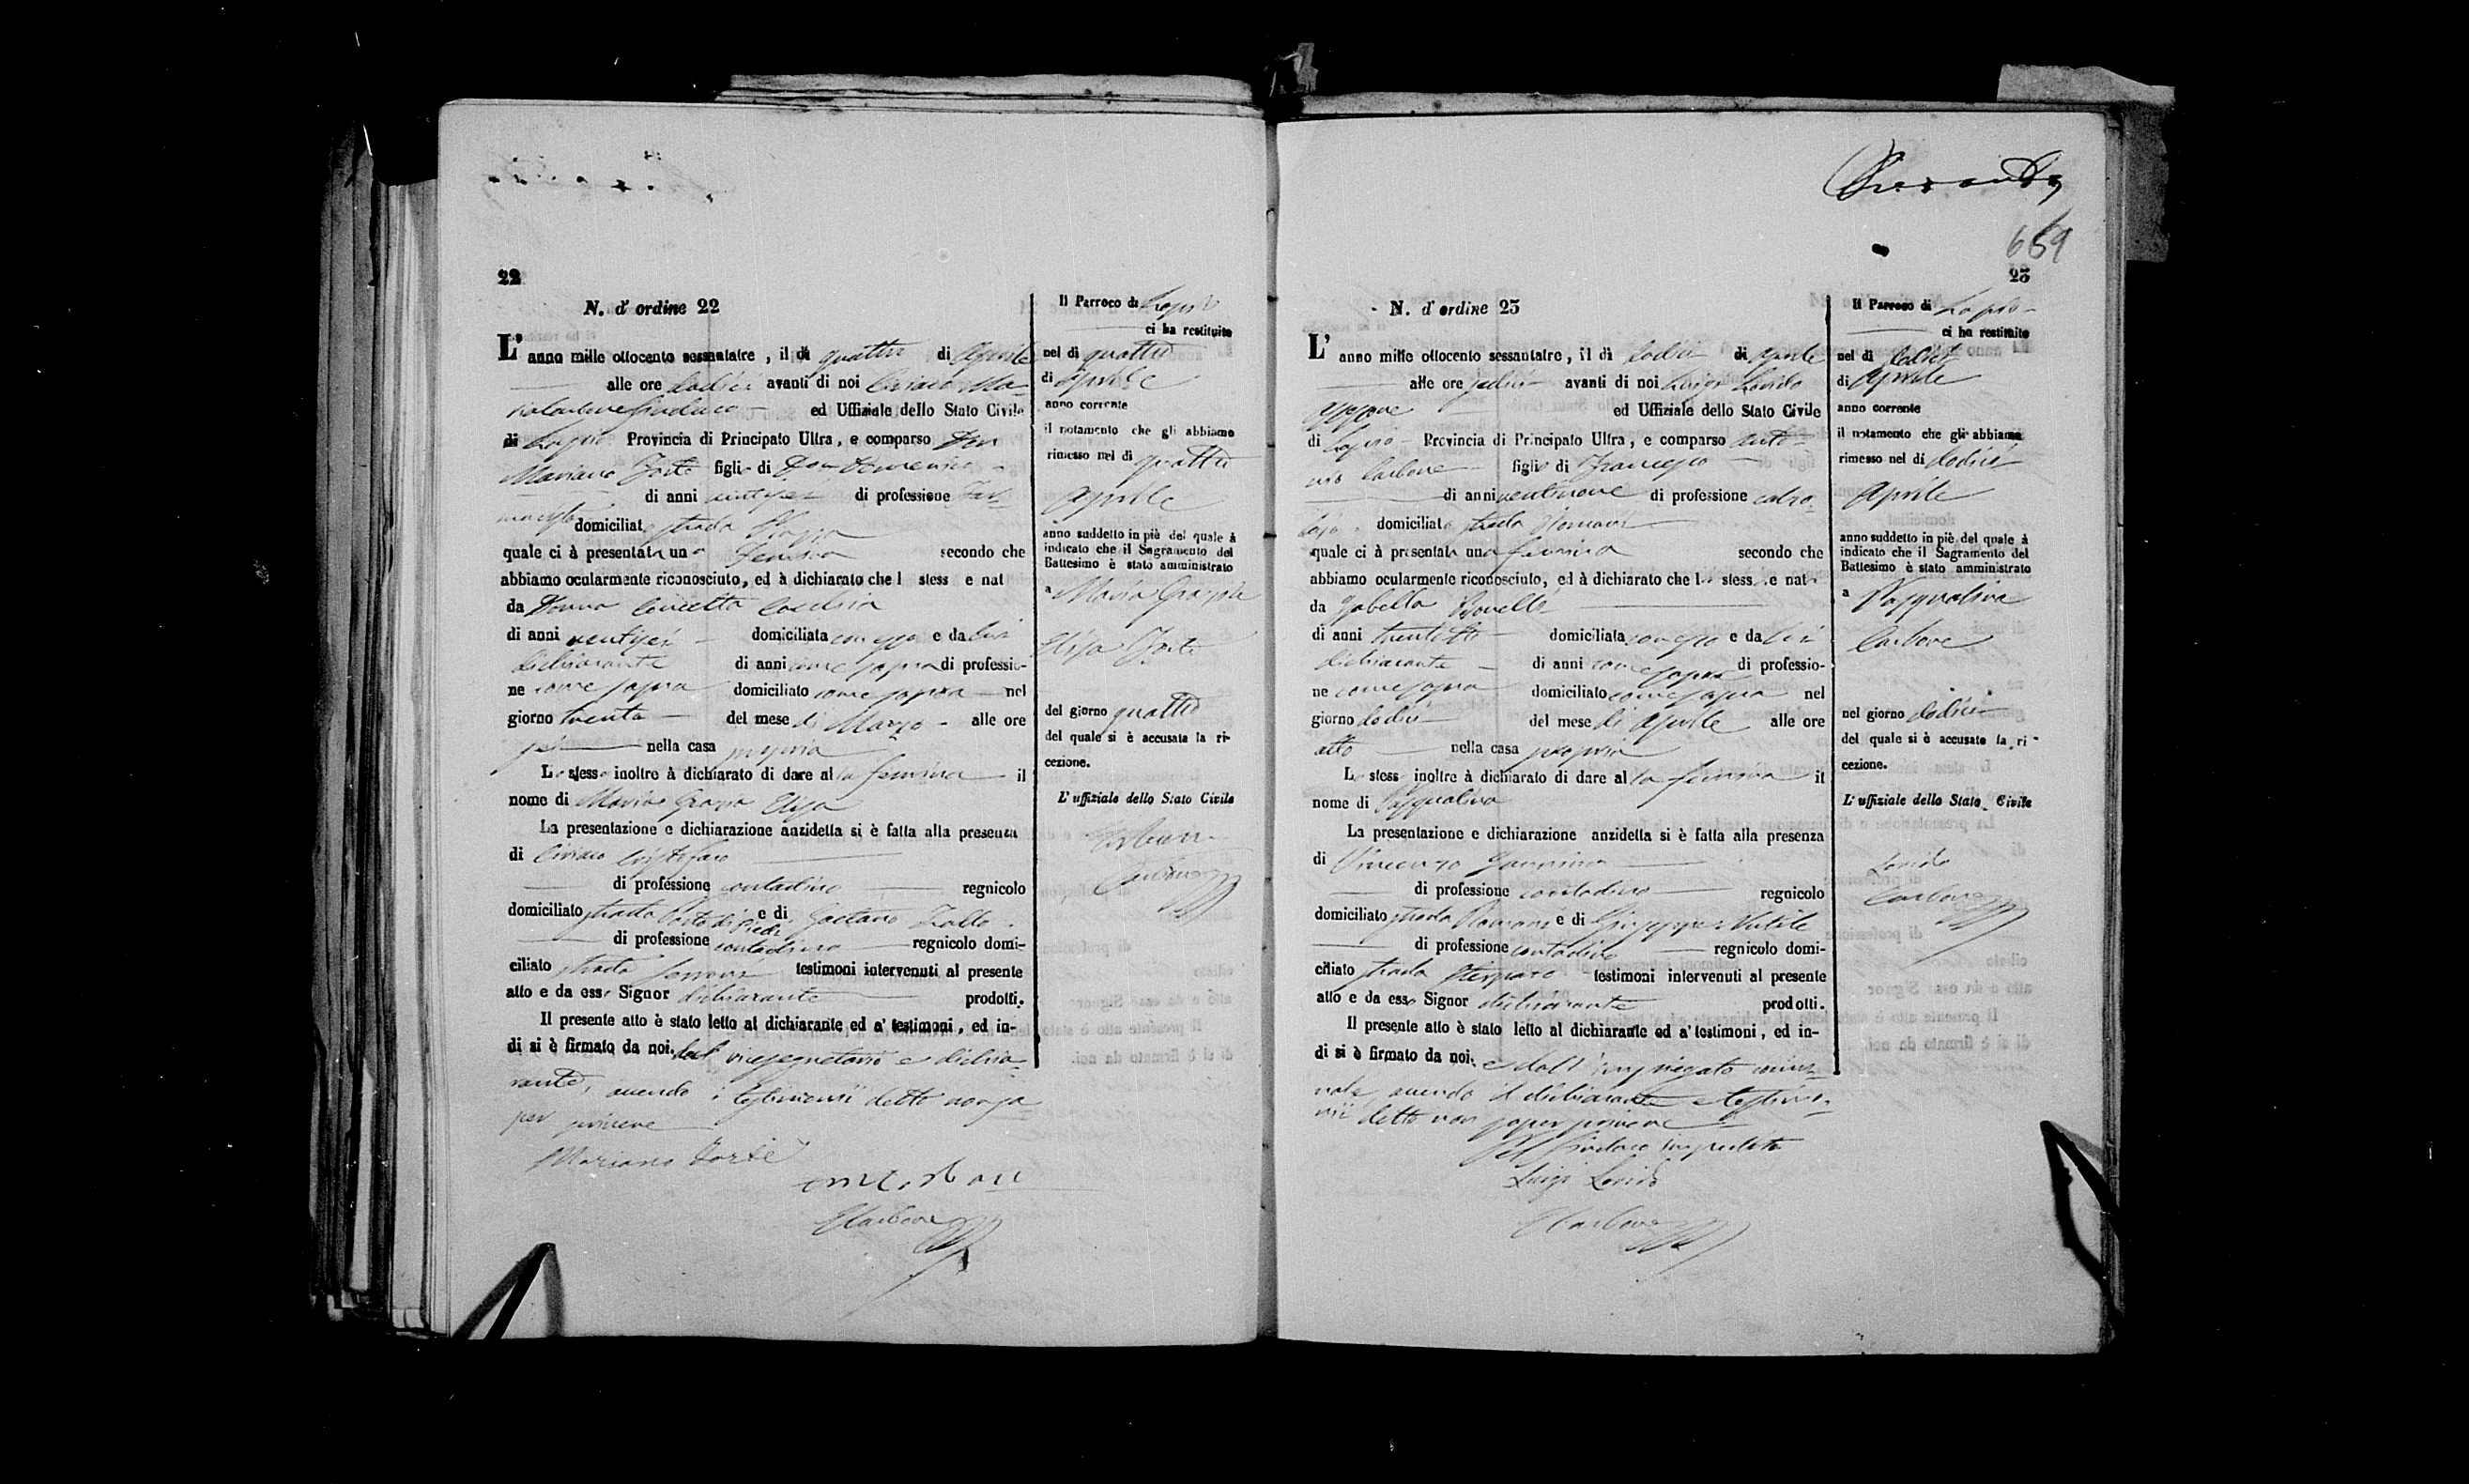 22
N. d'ordine 22
L' anno mille ottocento sessantatre, il dì quattro di Aprile
alle ore dodici avanti di noi Ciriaco Ma-
ria Carbone Sindaco ed Uffiziale dello Stato Civile
di Lapio Provincia di Principato Ultra, e comparso Don
Mariano Forte figlio di Don Domenico
di anni ventisei di professione Far-
macista domiciliato strada Piazza
quale ci à presentata una Femina secondo che
abbiamo ocularmente riconosciuto, ed à dichiarato che l stess e nat
da Donna Concetta
di anni ventisei domiciliata con esso e da lui
dichiarante di anni come sopra di professio-
ne come sopra domiciliato come sopra nel
giorno trenta del mese di Marzo alle ore
sei nella casa propria
Lo stesso inoltre à dichiarato di dare al la femina il
nome di Maria Grazia Elisa
La presentazione e dichiarazione anzidetta si è fatta alla presenza
di Ciriaco Cristofaro
di professione contadino regnicolo
domiciliato strada e di Gaetano
di professione contadino regnicolo domi-
ciliato strada testimoni intervenuti al presente
atto e da esso Signor dichiarante prodotti.
Il presente atto è stato letto al dichiarante ed a' testimoni, ed in-
di si è firmato da noi, dal vicesegretario e dichia-
rante, avendo i testimonii detto non sa-
per scrivere
Mariano Forte
Carbone
Il Parroco di Lapio
ci ha restituito
nel dì quattro
di Aprile
anno corrente
il notamento che gli abbiamo
rimesso nel dì quattro
Aprile
anno suddetto in piè del quale à
indicato che il Sagramento del
Battesimo è stato amministrato
a Maria Grazia
Elisa Forte
del giorno quattro
del quale si è accusata la ri-
cezione.
L'uffiziale dello Stato Civile
Carbone
659
23
N. d'ordine 23
L' anno mille ottocento sessantatre, il dì dodici di Aprile
alle ore sedici avanti di noi Luigi Lonido
ed Uffiziale dello Stato Civile
di Lapio Provincia di Principato Ultra, e comparso Anto-
nio Carbone figlio di Francesco
di anni ventinove di professione calzo-
lajo domiciliato strada Romani
quale ci à presentata una femina secondo che
abbiamo ocularmente riconosciuto, ed à dichiarato che l stess e nat
da Isabella
di anni trentotto domiciliata con esso e da lui
dichiarante di anni come sopra di professio-
ne come sopra domiciliato come sopra nel
giorno dodici del mese di Aprile alle ore
otto nella casa propria
Lo stesso inoltre à dichiarato di dare al la femina il
nome di Pasqualina
La presentazione e dichiarazione anzidetta si è fatta alla presenza
di Vincenzo
di professione contadino regnicolo
domiciliato strada Romani e di Giuseppe
di professione contadino regnicolo domi-
ciliato strada testimoni intervenuti al presente
atto e da esso Signor dichiarante prodotti.
Il presente atto è stato letto al dichiarante ed a' testimoni, ed in-
di si è firmato da noi, e dall' impiegato comu-
nale avendo il dichiarante e testimo-
nii detto non saper scrivere
Pel Sindaco impedito
Luigi Lonido
Carbone
Il Parroco di Lapio
ci ha restituito
nel dì dodici
di Aprile
anno corrente
il notamento che gli abbiamo
rimesso nel dì dodici
Aprile
anno suddetto in piè del quale à
indicato che il Sagramento del
Battesimo è stato amministrato
a Pasqualina
Carbone
nel giorno dodici
del quale si è accusato la ri-
cezione.
L'uffiziale dello Stato Civile
Lonido
Carbone